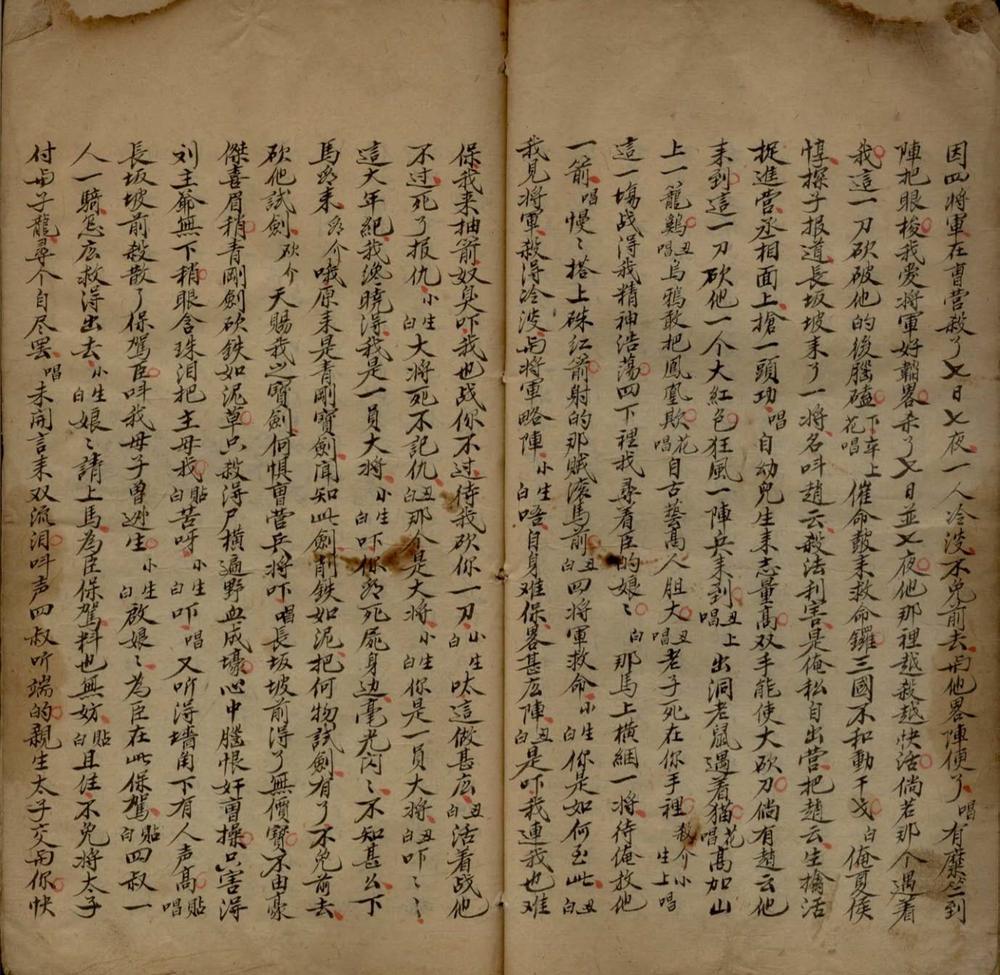 因四將軍在曹营殺了乂日乂夜一人冷淡不免前去而他畧陣便了唱有糜竺到
陣把眼梭我爱將軍好韜畧杀了乂日並乂夜他那裡越殺越快活倘若那个遇着
我這一刀砍破他的後腦磕下介上花唱催命皷来救命鑼三國不和動干戈白俺夏侯
惇探子报道長坂坡来了一將名叫趙云殺法利害是俺私自出营把趙云生擒活
捉進营丞相面上搶一頭功唱自幼兒生来志量髙双手能使大砍刀倘有趙云他
来到這一刀砍他一个大紅色狂風一陣兵来到丑上唱出洞老鼠遇着猫花唱髙加山
上一籠鷄丑唱烏鴉敢把鳳凰欺花唱自古藝髙人胆大丑唱老子死在你手裡殺介小生上唱
這一塲战得我精神浩蕩四下裡找尋着臣的娘〻白那馬上横綑一將待俺放他
一箭唱慢〻搭上硃紅箭射的那贼滚馬前丑白四將軍救命小生白你是如何至此丑白
我見將軍殺得冷淡而將軍略陣小生白唔自身难保畧甚庅陣丑白是吓我連我也难
保我来抽箭奴臭吓我也战你不过待我砍你一刀小生白呔這做甚庅丑白活着战他
不过死了报仇小生白大將死不記仇丑白那个是大將小生白你是一員大將丑白吓〻〻
這大年紀我纔曉得我是一員大將小生白吓你那死屍身边毫光闪〻不知甚么下
馬看来看介哦原来是青剛寳劍闻知此劍削鉄如泥把何物試劍有了不免前去
砍他試劍砍介天賜我此寳劍何惧曹营兵將吓唱長坂坡前得了無價寳不由豪
傑喜眉稍青剛劍砍鉄如泥草只殺得尸横遍野血成壕心中腦恨奸曹操只害得
刘主爺無下稍眼含珠泪把主母找貼白苦呀小生白吓唱又听得墙角下有人声髙貼唱
長坂坡前殺散了保駕臣叫我母子曽逃生小生白啟娘〻為臣在此保駕貼白四叔一
人一騎怎庅救得出去小生白娘〻請上馬為臣保駕料也無妨貼白且住不免將太子
付而子龍尋个自尽罢唱未開言来双流泪叫声四叔听端的親生太子交而你快